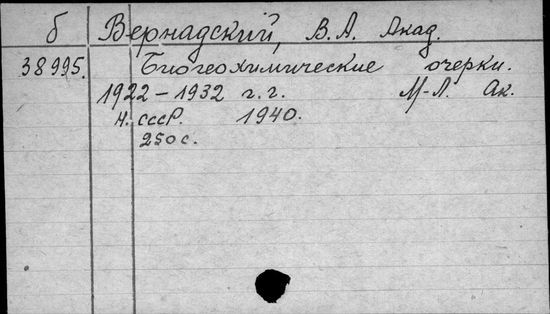 б Вернадский, В.А. Акад.
38995. Биогеохимические очерки.
1922 – 1932 г.г. М-Л. Ак.
Н. СССР. 1940.
250 с.